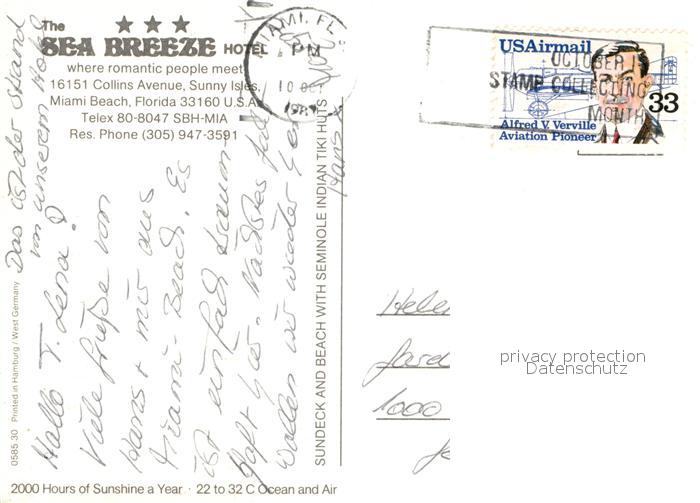 The
★ ★ ★
SEA BREEZE HOTEL
where romantic people meet
16151 Collins Avenue, Sunny Isles,
Miami Beach, Florida 33160 U.S.A.
Telex 80-8047 SBH-MIA
Res. Phone (305) 947-3591
MIAMI, FL
PM
10 OCT
OCTOBER IS
STAMP COLLECTING
MONTH
USAirmail
33
Alfred V. Verville
Aviation Pioneer
Das ist der Strand
von unserem Hotel
Hallo T. Lena!
Viele Grüße von
Hans + mir aus
Miami-Beach. Es
ist einfach traum-
haft hier. Nächstes Jahr
wollen wir wieder
Hans &
0585 30 Printed in Hamburg/West Germany
SUNDECK AND BEACH WITH SEMINOLE INDIAN TIKI HUTS
2000 Hours of Sunshine a Year · 22 to 32 C Ocean and Air
1000
privacy protection
Datenschutz